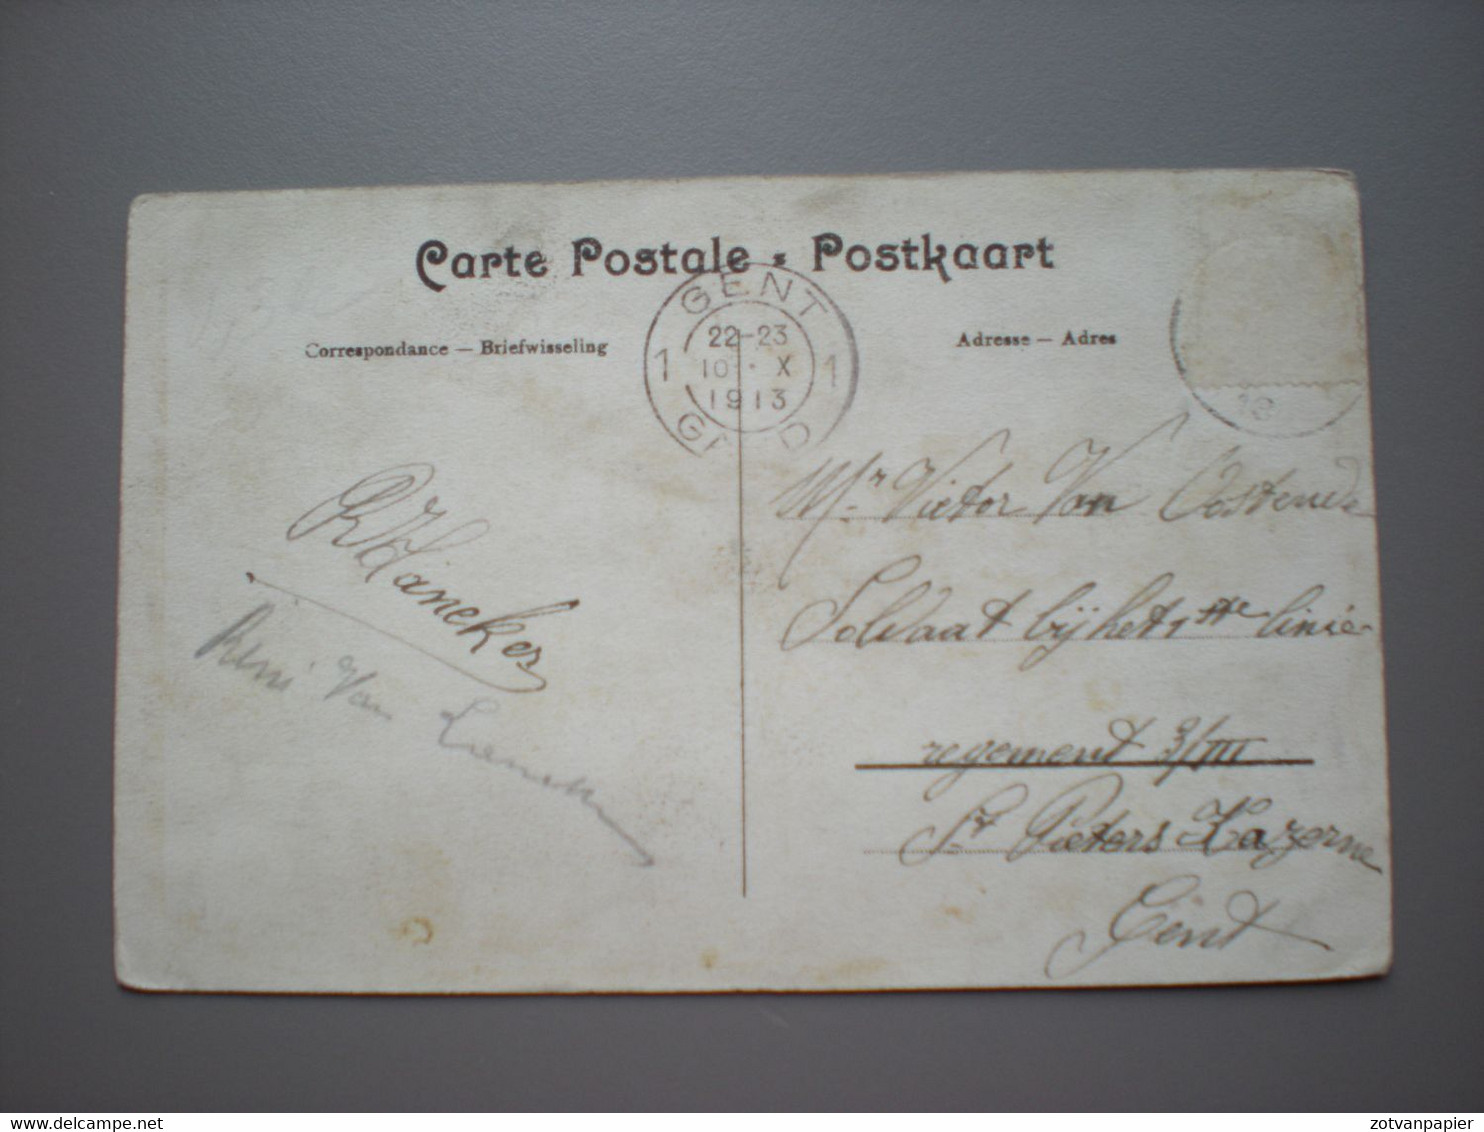 Carte Postale - Postkaart
Correspondance — Briefwisseling
Adresse — Adres
GENT
22-23
1 10 · X 1
1913
Mr. Victor Van Oostende
Soldaat bij het 1ste linie
regement 3/III
St Pieters Kazerne
Gent
Remi Van
delcampe.net
zotvanpapier